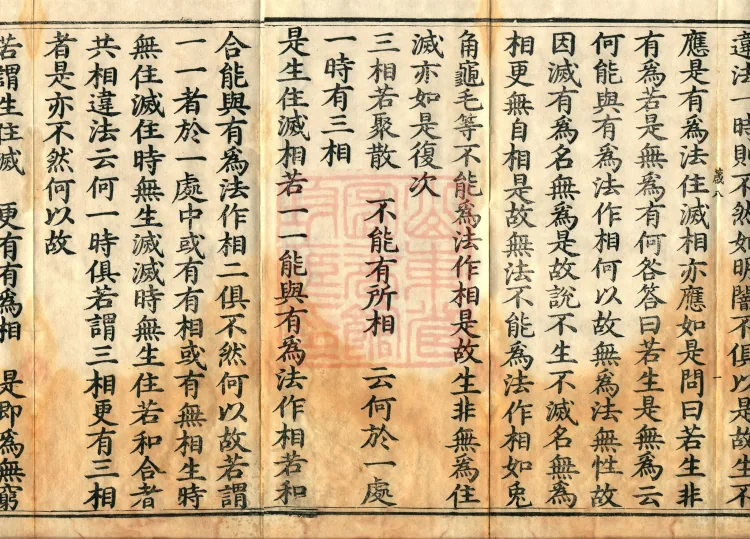 違法一時則不然如明闇不俱以是故生不
歲八 一
應是有爲法住滅相亦應如是問曰若生非
有爲若是無爲有何咎答曰若生是無爲云
何能與有爲法作相何以故無爲法無性故
因滅有爲名無爲是故說不生不滅名無爲
相更無自相是故無法不能爲法作相如兎
角龜毛等不能爲法作相是故生非無爲住
滅亦如是復次
三相若聚散 不能有所相 云何於一處
一時有三相
是生住滅相若一一能與有爲法作相若和
合能與有爲法作相二俱不然何以故若謂
一一者於一處中或有有相或有無相生時
無住滅住時無生滅滅時無生住若和合者
共相違法云何一時俱若謂三相更有三相
者是亦不然何以故
若謂生住滅 更有有爲相 是即爲無窮